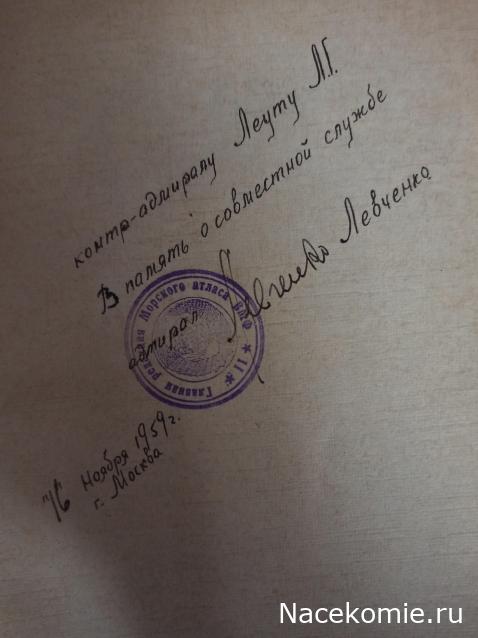 контр-адмиралу Леуту Л.Г.
В память о совместной службе
адмирал Левченко Левченко
Главная редакция Морского атласа ВМФ
* 11 *
"16" Ноября 1959 г.
г. Москва
Nacekomie.ru